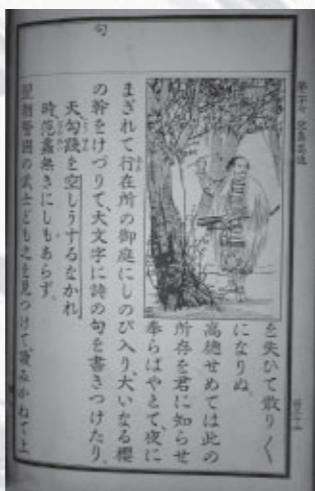 第二十六 児島高徳
を失ひて散り〳〵
になりぬ。
高徳せめては此の
所存を君に知らせ
奉らばやとて、夜に
まぎれて行在所の御庭にしのび入り、大いなる櫻
の幹をけづりて、大文字に詩の句を書きつけたり、
天勾践を空しうするなかれ
時范蠡無きにしもあらず。
翌朝警固の武士ども之を見つけて、讀みかねて上
句